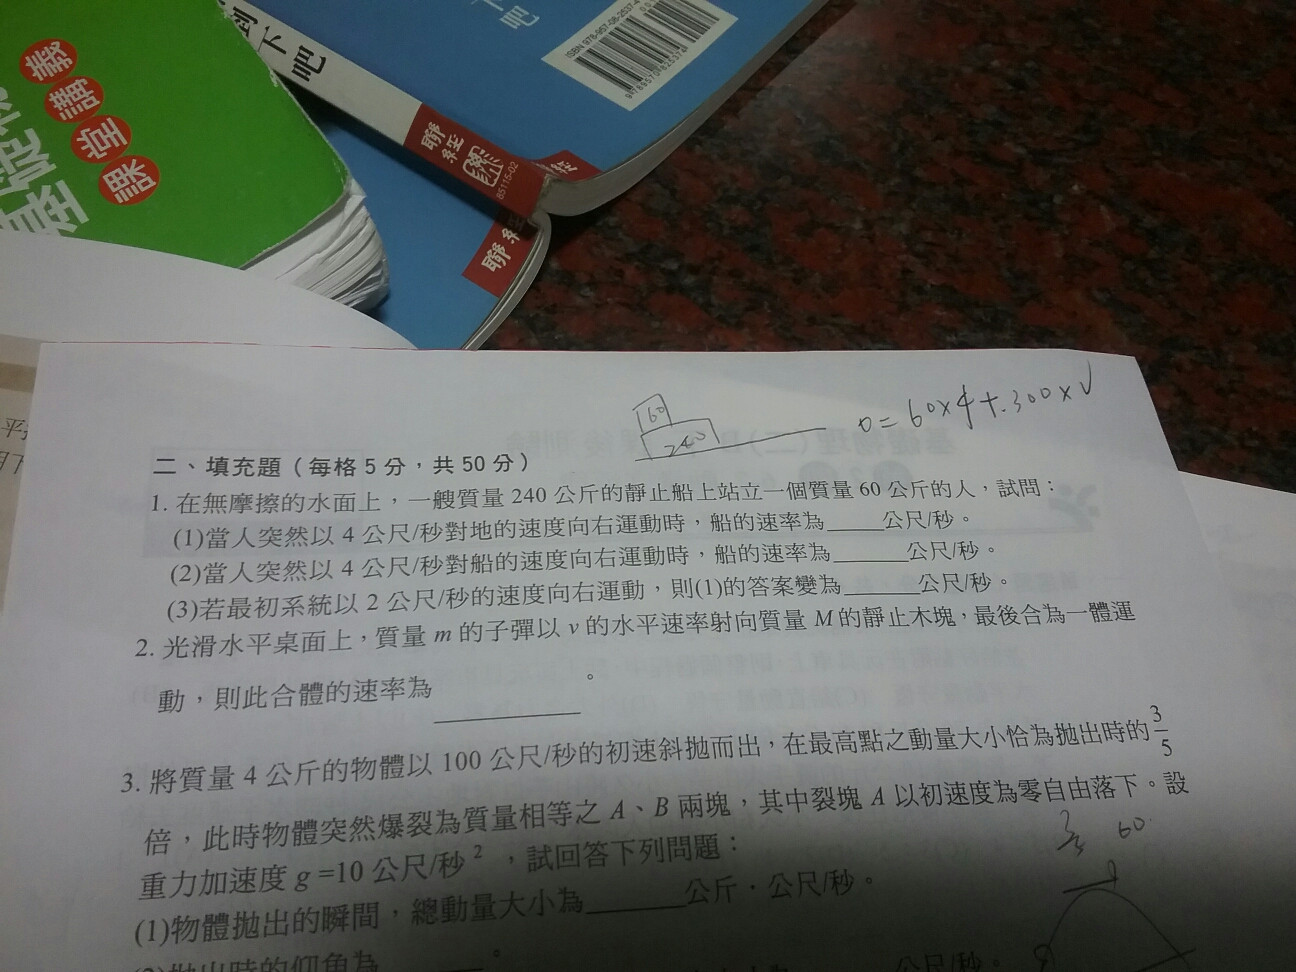 課堂講義
到下吧
下吧
ISBN 978-957-08-2537-4
聯經
85115-02
聯經
60
240
0=60×4+.300×V
二、填充題(每格5分,共50分)
1. 在無摩擦的水面上,一艘質量 240 公斤的靜止船上站立一個質量 60 公斤的人,試問:
(1)當人突然以 4 公尺/秒對地的速度向右運動時,船的速率為______公尺/秒。
(2)當人突然以 4 公尺/秒對船的速度向右運動時,船的速率為______公尺/秒。
(3)若最初系統以 2 公尺/秒的速度向右運動,則(1)的答案變為______公尺/秒。
2. 光滑水平桌面上,質量 m 的子彈以 v 的水平速率射向質量 M 的靜止木塊,最後合為一體運
動,則此合體的速率為__________。
3. 將質量 4 公斤的物體以 100 公尺/秒的初速斜拋而出,在最高點之動量大小恰為拋出時的 3/5
倍,此時物體突然爆裂為質量相等之 A、B 兩塊,其中裂塊 A 以初速度為零自由落下。設
重力加速度 g =10 公尺/秒²,試回答下列問題:
60
(1)物體拋出的瞬間,總動量大小為______公斤.公尺/秒。
(2)拋出時的仰角為______。
公尺/秒。